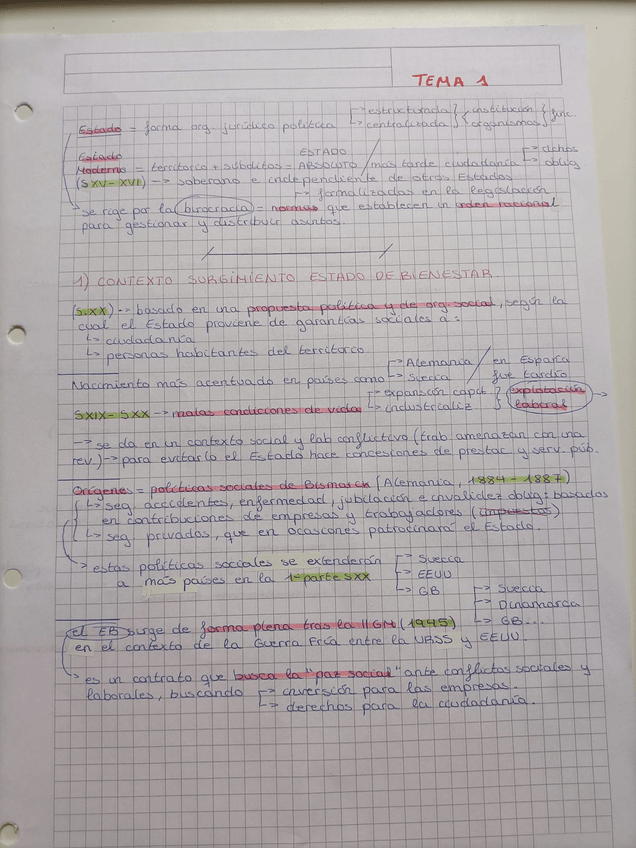 TEMA 1
Estado = forma org. jurídico política → estructurada → centralizada } { institución organismos } func.
Estado ESTADO
Moderno = territorio + súbditos = ABSOLUTO / más tarde ciudadanía → dchos → oblig
(SXV-XVI) → soberano e independiente de otros Estados
→ formalizadas en la legislación
→ se rige por la burocracia = normas que establecen un orden racional
para gestionar y distribuir asuntos.
1) CONTEXTO SURGIMIENTO ESTADO DE BIENESTAR
(S.XX) → basado en una propuesta política y de org. social, según la
cual el Estado proviene de garantías sociales a:
↳ ciudadanía
↳ personas habitantes del territorio
Nacimiento más acentuado en países como → Alemania → Suecia / en España fue tardío
SXIX-SXX → malas condiciones de vida → expansión capit → industrializ } explotación laboral →
→ se da en un contexto social y lab conflictivo (trab. amenazan con una
rev.) → para evitarlo el Estado hace concesiones de prestac y serv. púb.
Orígenes = políticas sociales de Bismarck (Alemania, 1884-1887)
↳ seg. accidentes, enfermedad, jubilación e invalidez oblig: basados
en contribuciones de empresas y trabajadores (impuestos)
↳ seg. privados, que en ocasiones patrocinará el Estado.
→ estas políticas sociales se extenderán → Suecia
a más países en la 1ª parte SXX → EEUU
→ GB → Suecia
→ Dinamarca
el EB surge de forma plena tras la IIGM (1945) → GB...
en el contexto de la Guerra Fría entre la URSS y EEUU.
→ es un contrato que busca la "paz social" ante conflictos sociales y
laborales, buscando → inversión para las empresas.
→ derechos para la ciudadanía.